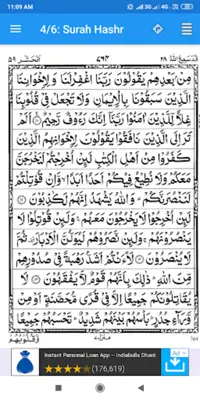 11:09 AM
3G 4G
4/6: Surah Hashr
قَدْ سَمِعَ اللّٰهُ ٢٨ ٤٩٣ اَلْحَشْر ٥٩
مِنْۢ بَعْدِهِمْ يَقُوْلُوْنَ رَبَّنَا اغْفِرْ لَنَا وَلِاِخْوَانِنَا
الَّذِيْنَ سَبَقُوْنَا بِالْاِيْمَانِ وَلَا تَجْعَلْ فِيْ قُلُوْبِنَا
غِلًّا لِّلَّذِيْنَ اٰمَنُوْا رَبَّنَاۤ اِنَّكَ رَءُوْفٌ رَّحِيْمٌ اَلَمْ
تَرَ اِلَى الَّذِيْنَ نَافَقُوْا يَقُوْلُوْنَ لِاِخْوَانِهِمُ الَّذِيْنَ
كَفَرُوْا مِنْ اَهْلِ الْكِتٰبِ لَئِنْ اُخْرِجْتُمْ لَنَخْرُجَنَّ
مَعَكُمْ وَلَا نُطِيْعُ فِيْكُمْ اَحَدًا اَبَدًا وَّاِنْ قُوْتِلْتُمْ
لَنَنْصُرَنَّكُمْ وَاللّٰهُ يَشْهَدُ اِنَّهُمْ لَكٰذِبُوْنَ
لَئِنْ اُخْرِجُوْا لَا يَخْرُجُوْنَ مَعَهُمْ وَلَئِنْ قُوْتِلُوْا لَا
يَنْصُرُوْنَهُمْ وَلَئِنْ نَّصَرُوْهُمْ لَيُوَلُّنَّ الْاَدْبَارَ ثُمَّ
لَا يُنْصَرُوْنَ لَاَنْتُمْ اَشَدُّ رَهْبَةً فِيْ صُدُوْرِهِمْ
مِّنَ اللّٰهِ ذٰلِكَ بِاَنَّهُمْ قَوْمٌ لَّا يَفْقَهُوْنَ لَا
يُقَاتِلُوْنَكُمْ جَمِيْعًا اِلَّا فِيْ قُرًى مُّحَصَّنَةٍ اَوْ مِنْ
وَّرَآءِ جُدُرٍ بَاْسُهُمْ بَيْنَهُمْ شَدِيْدٌ تَحْسَبُهُمْ جَمِيْعًا
وَّقُلُوْبُهُمْ
Instant Personal Loan App – Indiabulls Dhani
(176,619)
Ad